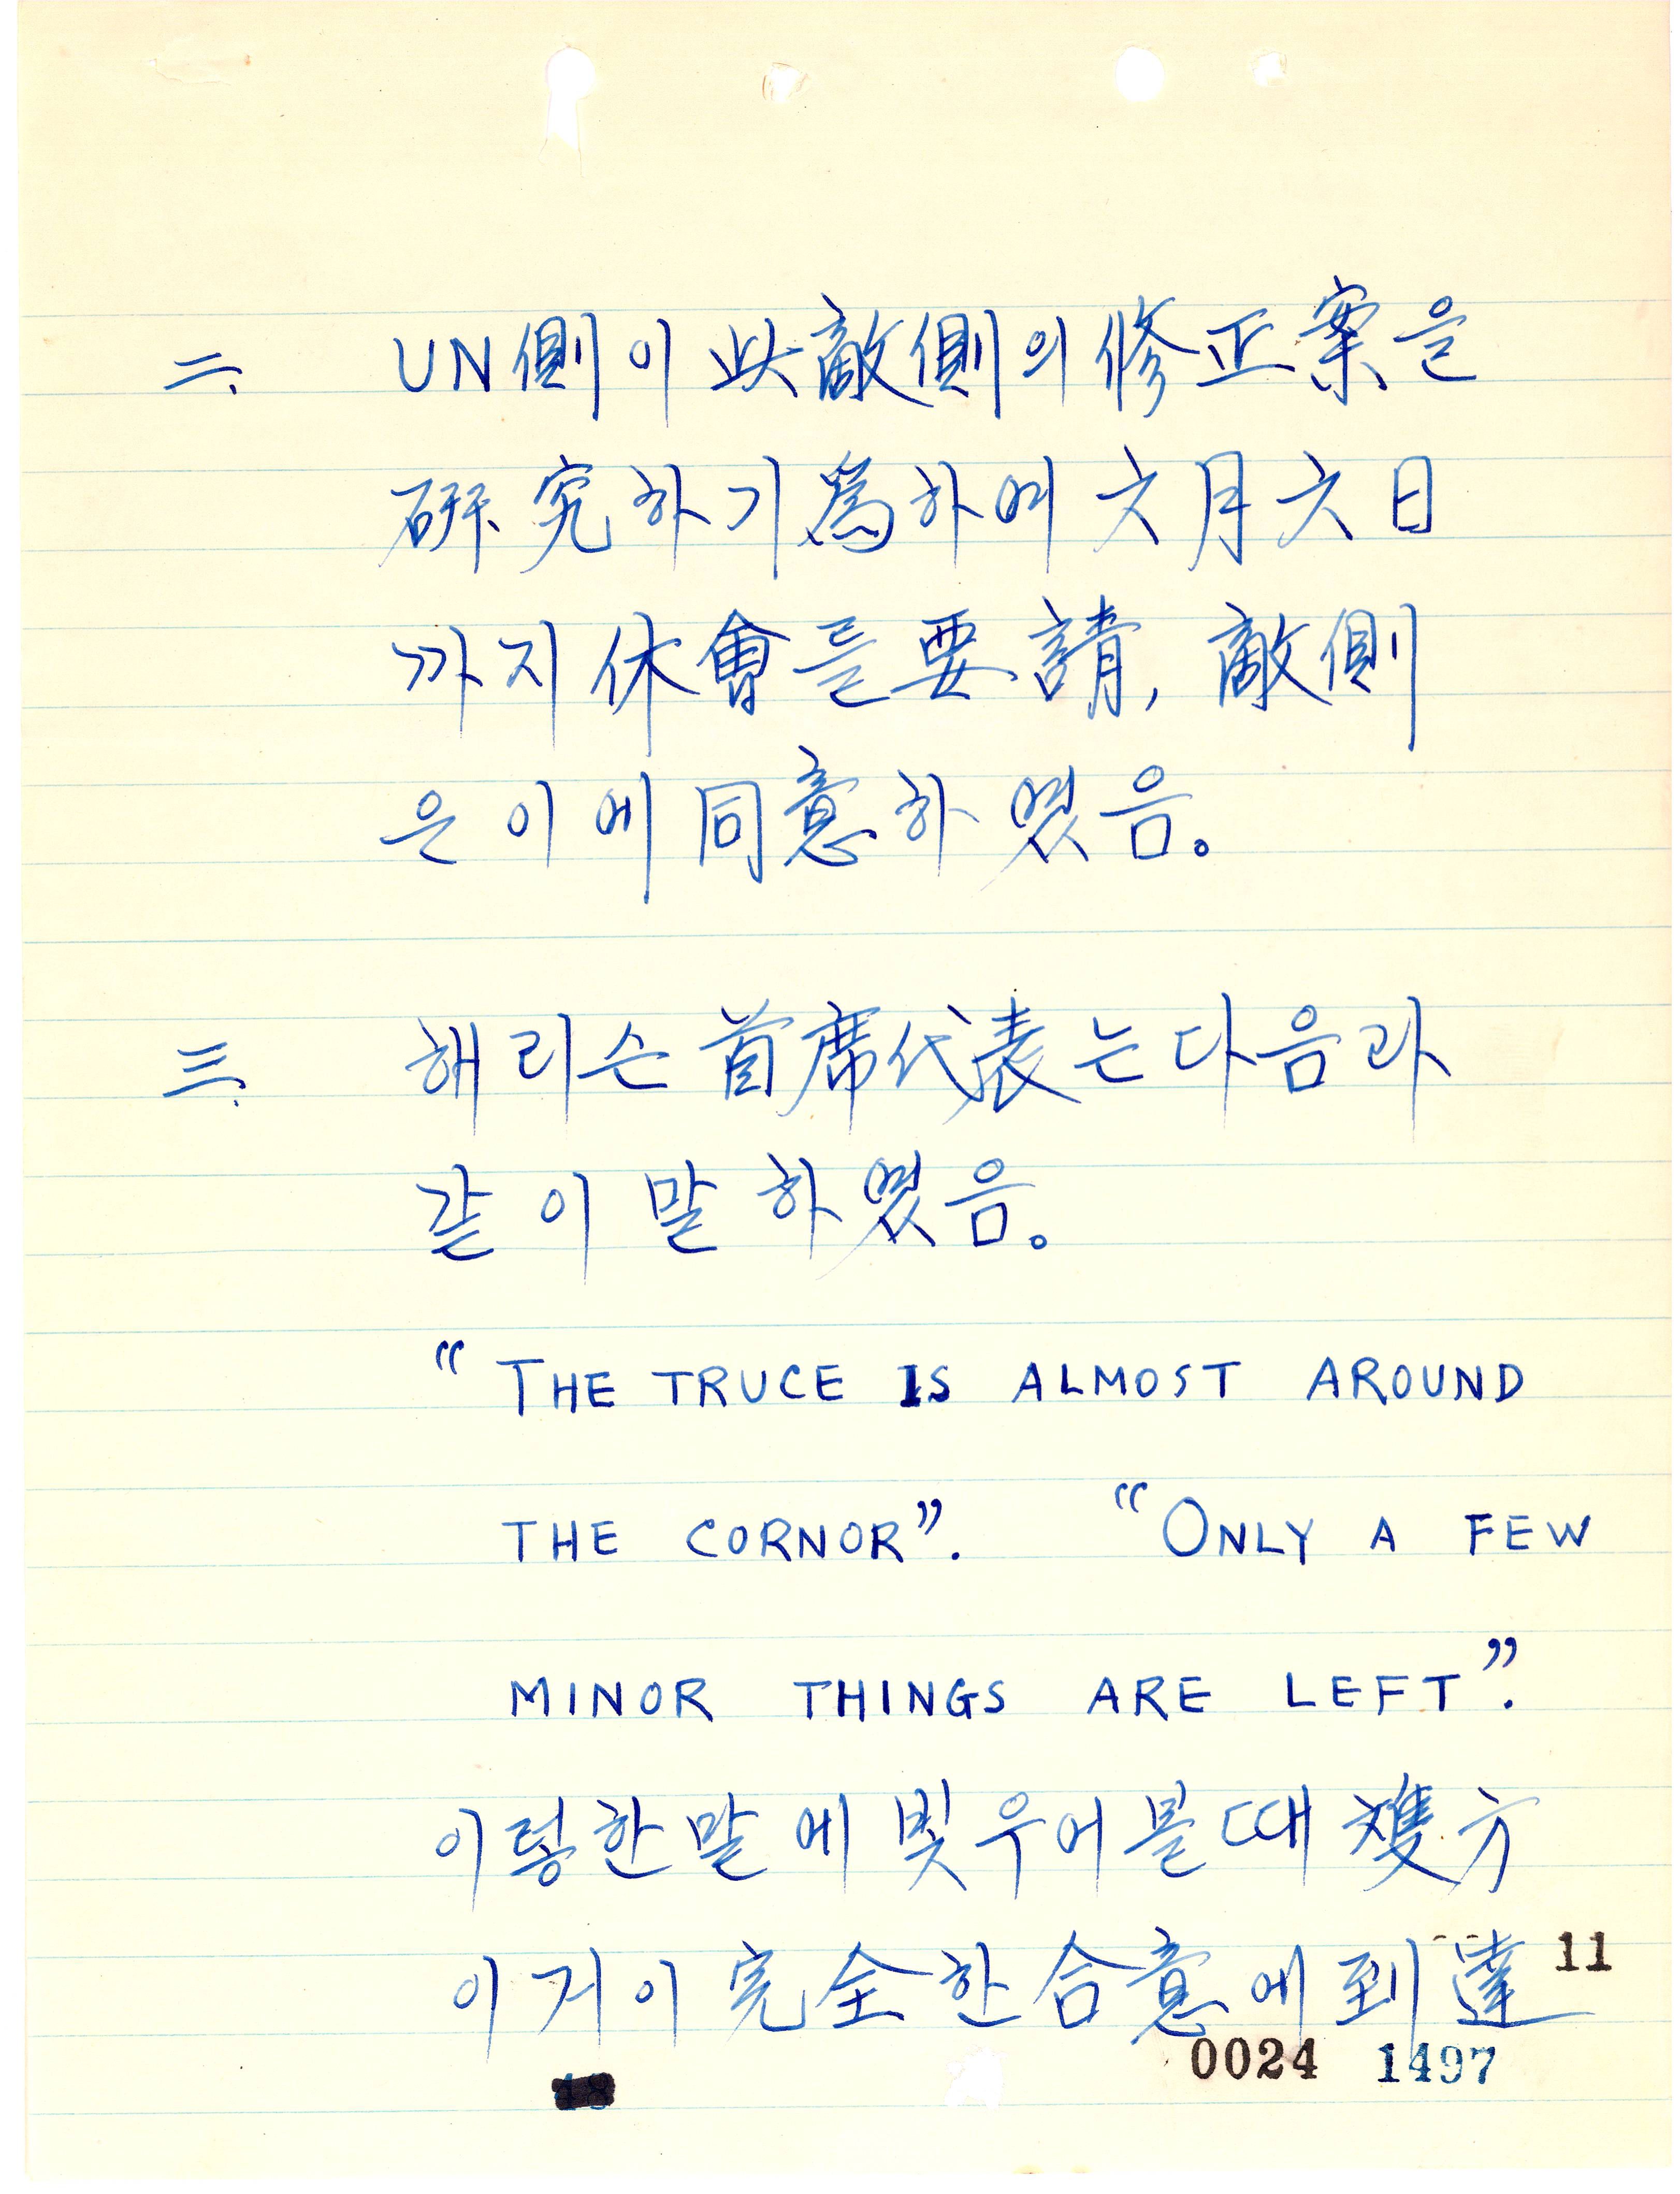 二. UN側이 此 敵側의 修正案을
硏究하기 爲하여 六月六日
까지 休會를 要請, 敵側
은 이에 同意하였음。
三. 해리슨 首席代表는 다음과
같이 말하였음。
“THE TRUCE IS ALMOST AROUND
THE CORNOR”. “ONLY A FEW
MINOR THINGS ARE LEFT”.
이렇한 말에 빛우어 볼때 雙方
이 거이 完全한 合意에 到達
11
0024 1497